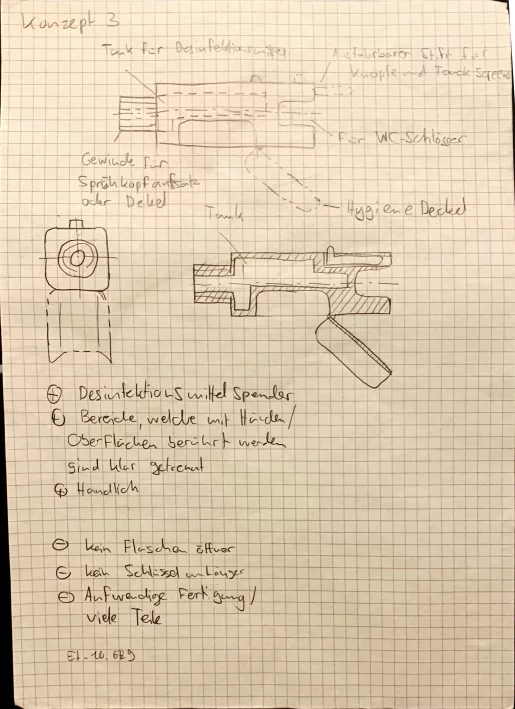 Konzept 3
Tank für Desinfektionsmittel
Ausfahrbarer Stift für
Knöpfe und Touch Screens
für WC-Schlösser
Gewinde für
Sprühkopfaufsatz
oder Deckel
Hygiene Deckel
Tank
⊕ Desinfektionsmittel Spender
⊕ Bereiche, welche mit Händen/
Oberflächen berührt werden
sind klar getrennt
⊕ Handlich
⊖ kein Flaschenöffner
⊖ kein Schlüsselanhänger
⊖ Aufwendige Fertigung/
viele Teile